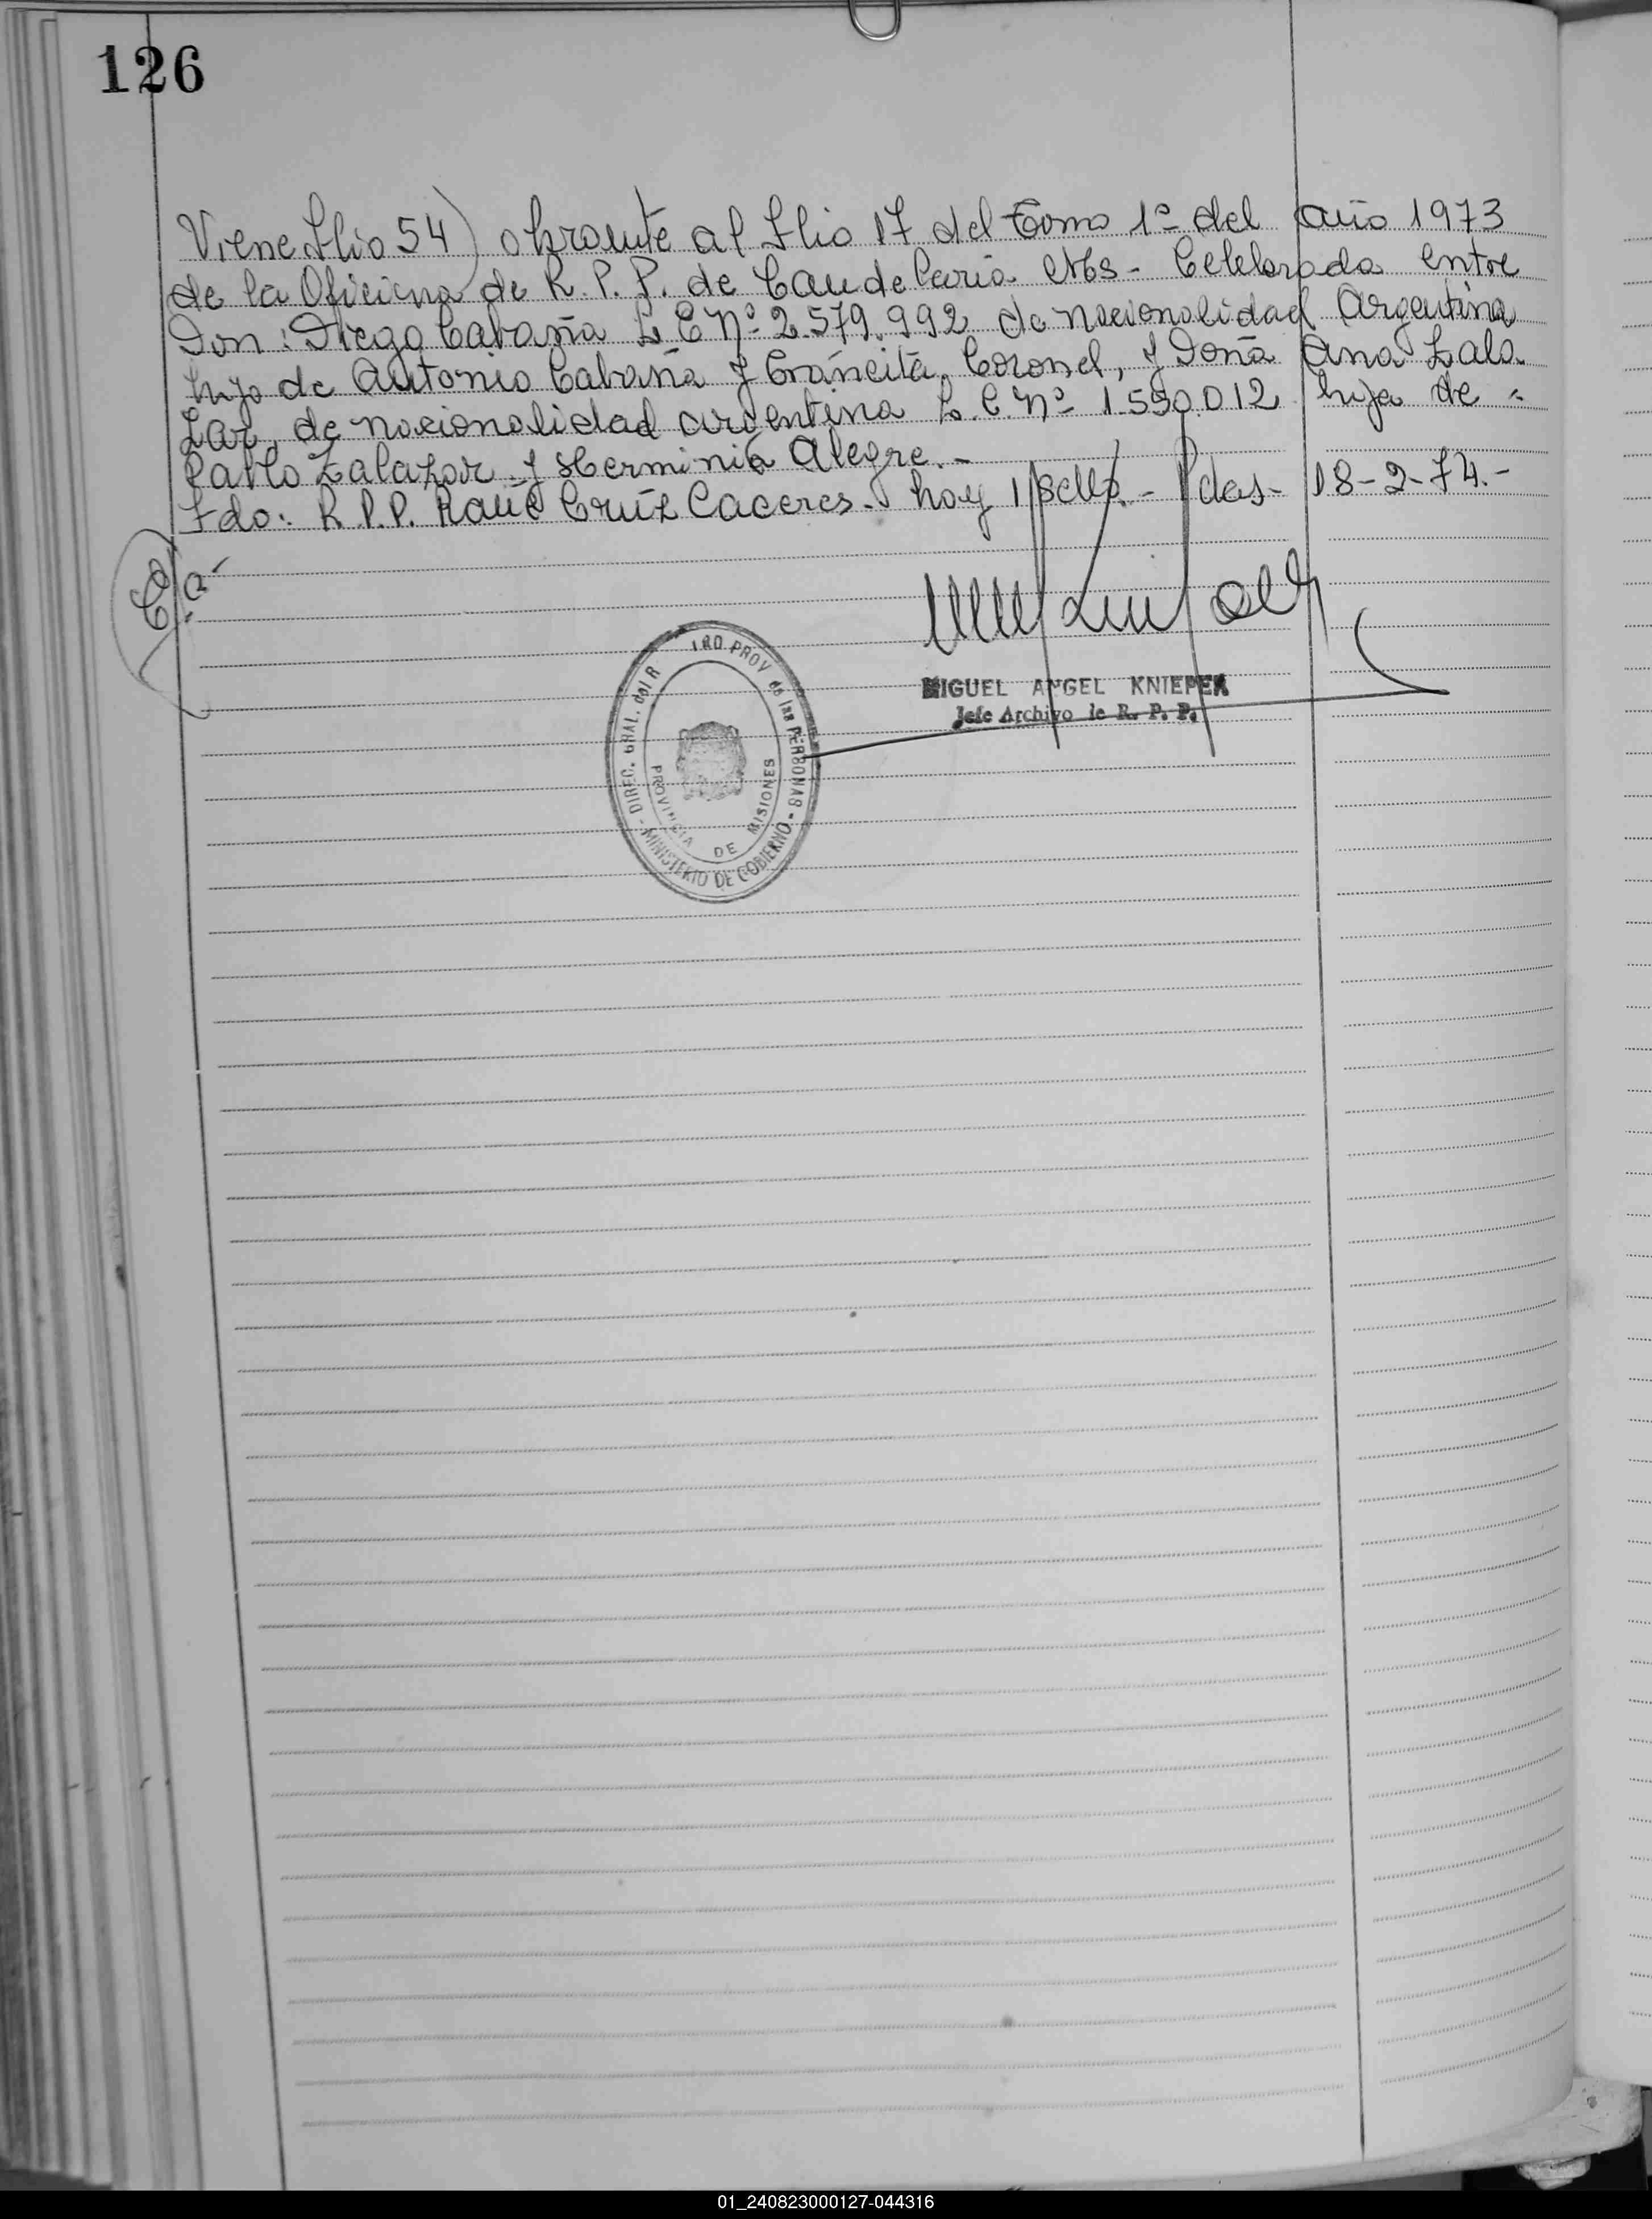 126
Viene flio 54) obrante al flio 17 del tomo 1º del año 1973
de la Oficina de R. P. P. de Candelaria Mes - Celebrada entre
Don: Diego Cabaña L E Nº 2.579.992 de nacionalidad Argentina
hijo de Antonio Cabaña y Coronel, y Doña Ana Zala-
zar, de nacionalidad argentina L. C. Nº 1.590.012 hija de =
Pablo Zalazar y Herminia Alegre.-
Fdo: R.P.P. Raúl Cruz Caceres. hoy 1 sello - Pdas- 18-2-74.-
MIGUEL ANGEL KNIEPER
Jefe Archivo de R. P. P.
DIREC. GRAL. del R PROV de las PERSONAS - MINISTERIO DE GOBIERNO -
PROVINCIA DE MISIONES
01_240823000127-044316